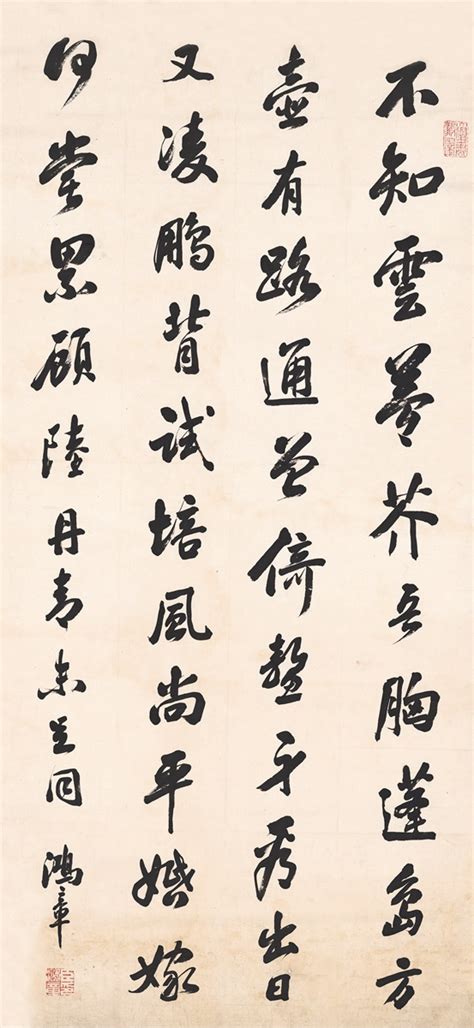 不知雲夢芥吾胸蓬島方
壺有路通曾倚鼇身看出日
又凌鵬背試培風尚平婚嫁
何嘗累顧陸丹青未足同
鴻章